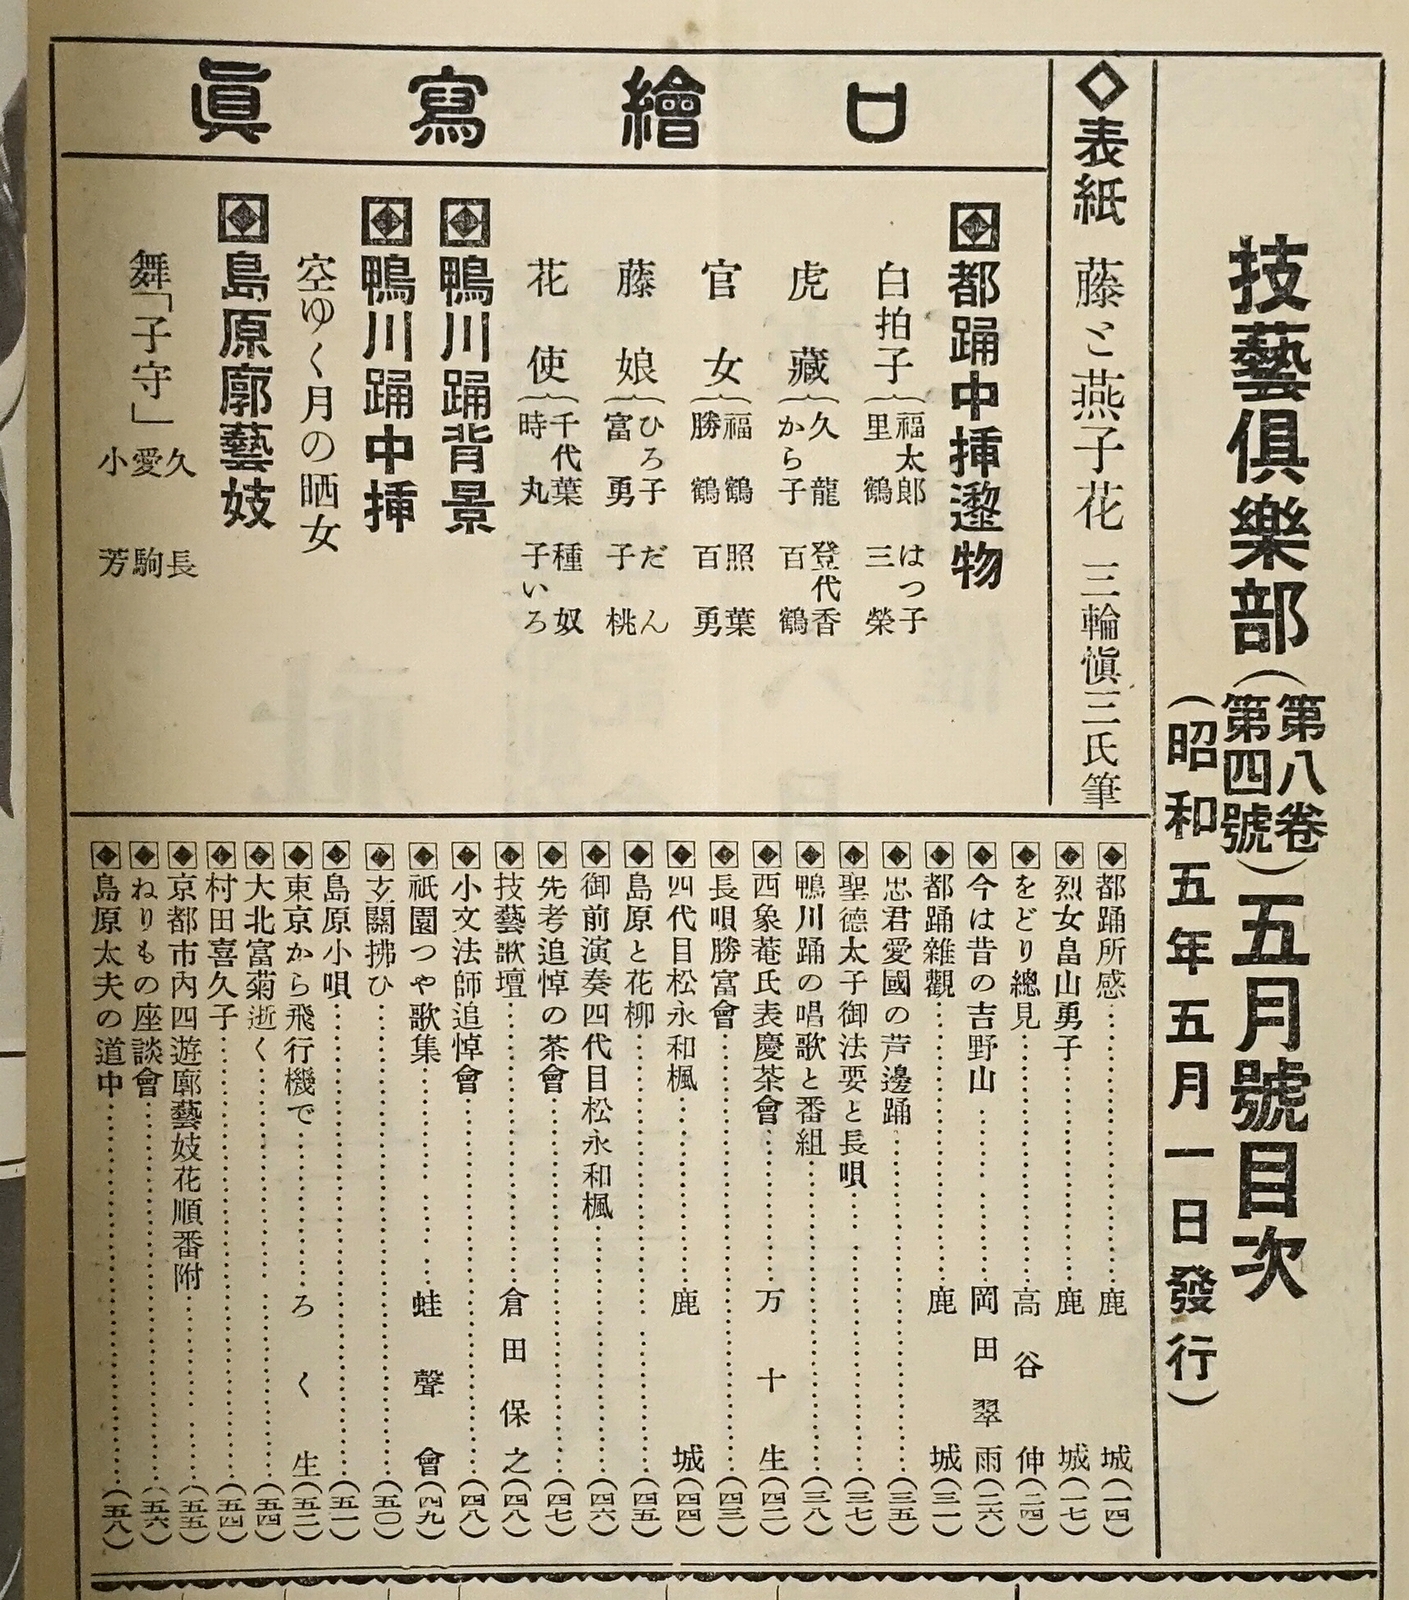 技藝倶樂部（第八卷第四號）五月號目次
（昭和五年五月一日發行）
◇表紙 藤と燕子花 三輪愼三氏筆
口繪寫眞
都踊中挿邌物
白拍子 福太郎 はつ子 里鶴 三榮
虎藏 久龍 登代香 から子 百鶴
官女 福鶴 照葉 勝鶴 百勇
藤娘 ひろ子 だん 富勇 子桃
花使 千代葉 種奴 時丸 子いろ
鴨川踊背景
鴨川踊中挿
空ゆく月の晒女
島原廓藝妓
舞「子守」 久長 愛駒 小芳
都踊所感 鹿城（一四）
烈女畠山勇子 鹿城（一七）
をどり總見 高谷伸（二四）
今は昔の吉野山 岡田翠雨（二六）
都踊雜觀 鹿城（三一）
忠君愛國の芦邊踊（三五）
聖德太子御法要と長唄（三七）
鴨川踊の唱歌と番組（三八）
西象菴氏表慶茶會 万十生（四二）
長唄勝富會（四三）
四代目松永和楓 鹿城（四四）
島原と花柳（四五）
御前演奏四代目松永和楓（四六）
先考追悼の茶會（四七）
技藝歌壇 倉田保之（四八）
小文法師追悼會（四八）
祇園つや歌集 蛙聲會（四九）
玄關拂ひ（五〇）
島原小唄（五一）
東京から飛行機で ろく生（五二）
大北富菊逝く（五四）
村田喜久子（五四）
京都市内四遊廓藝妓花順番附（五五）
ねりもの座談會（五六）
島原太夫の道中（五八）